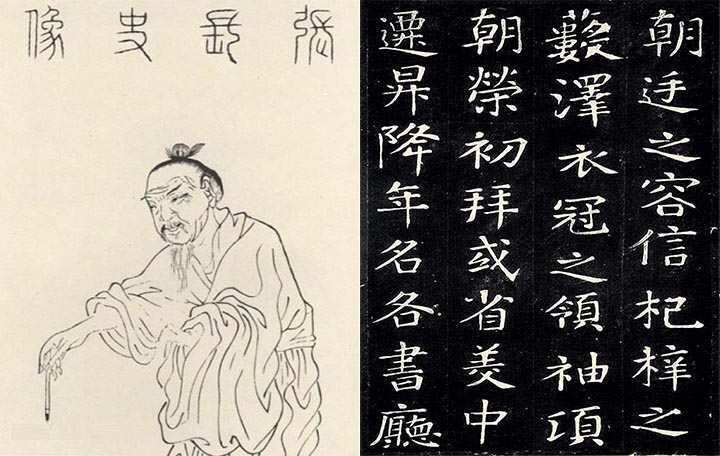 張長史像
朝廷之容信杞梓之
藪澤衣冠之領袖項
朝榮初拜或省美中
遷昇降年名各書廳